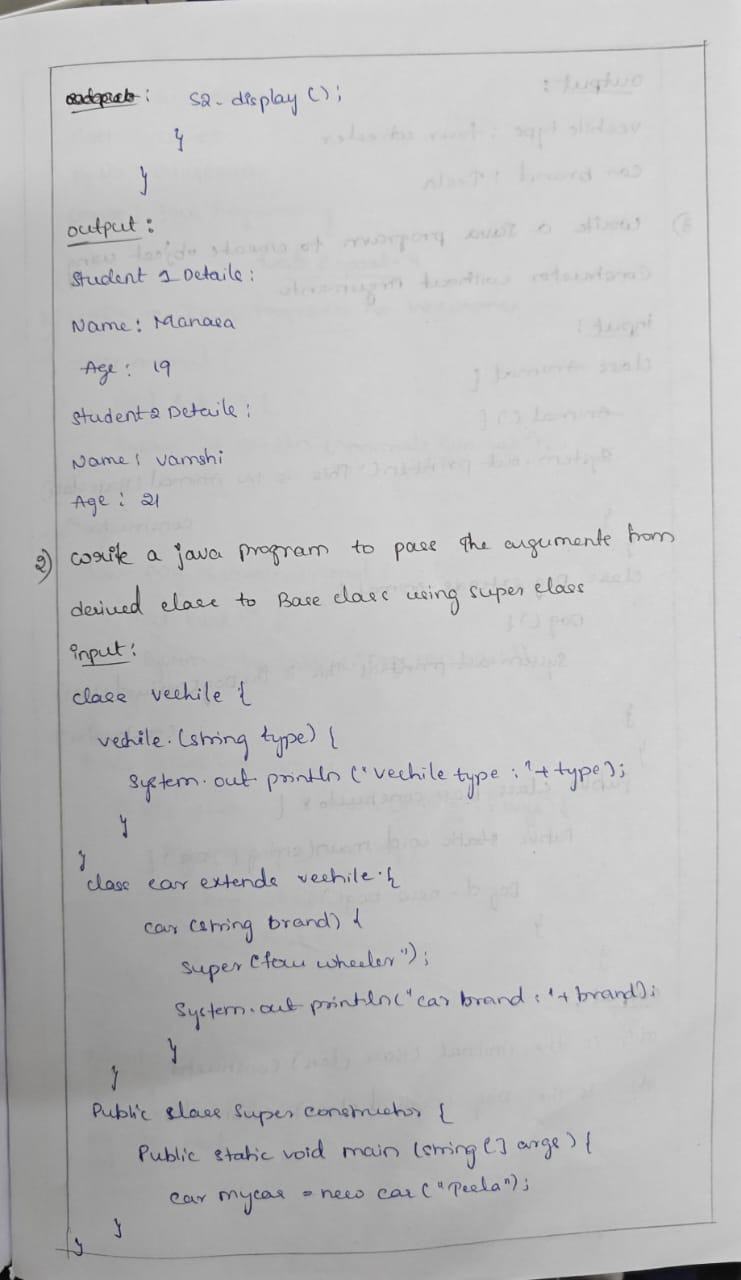 : S2. display ();
}
}
output :
Student 1 Details :
Name : Manasa
Age : 19
Student 2 Details :
Name : vamshi
Age : 21
2) write a java program to pass the arguments from
derived class to Base class using super class
input :
class vechile {
vechile. (string type) {
System.out println ("vechile type : "+ type);
}
}
class car extends vechile {
car (string brand) {
super ("four wheeler");
System.out println ("car brand : "+ brand);
}
}
Public class Super constructor {
Public static void main (string [] args) {
car mycar = new car ("
");
}
}